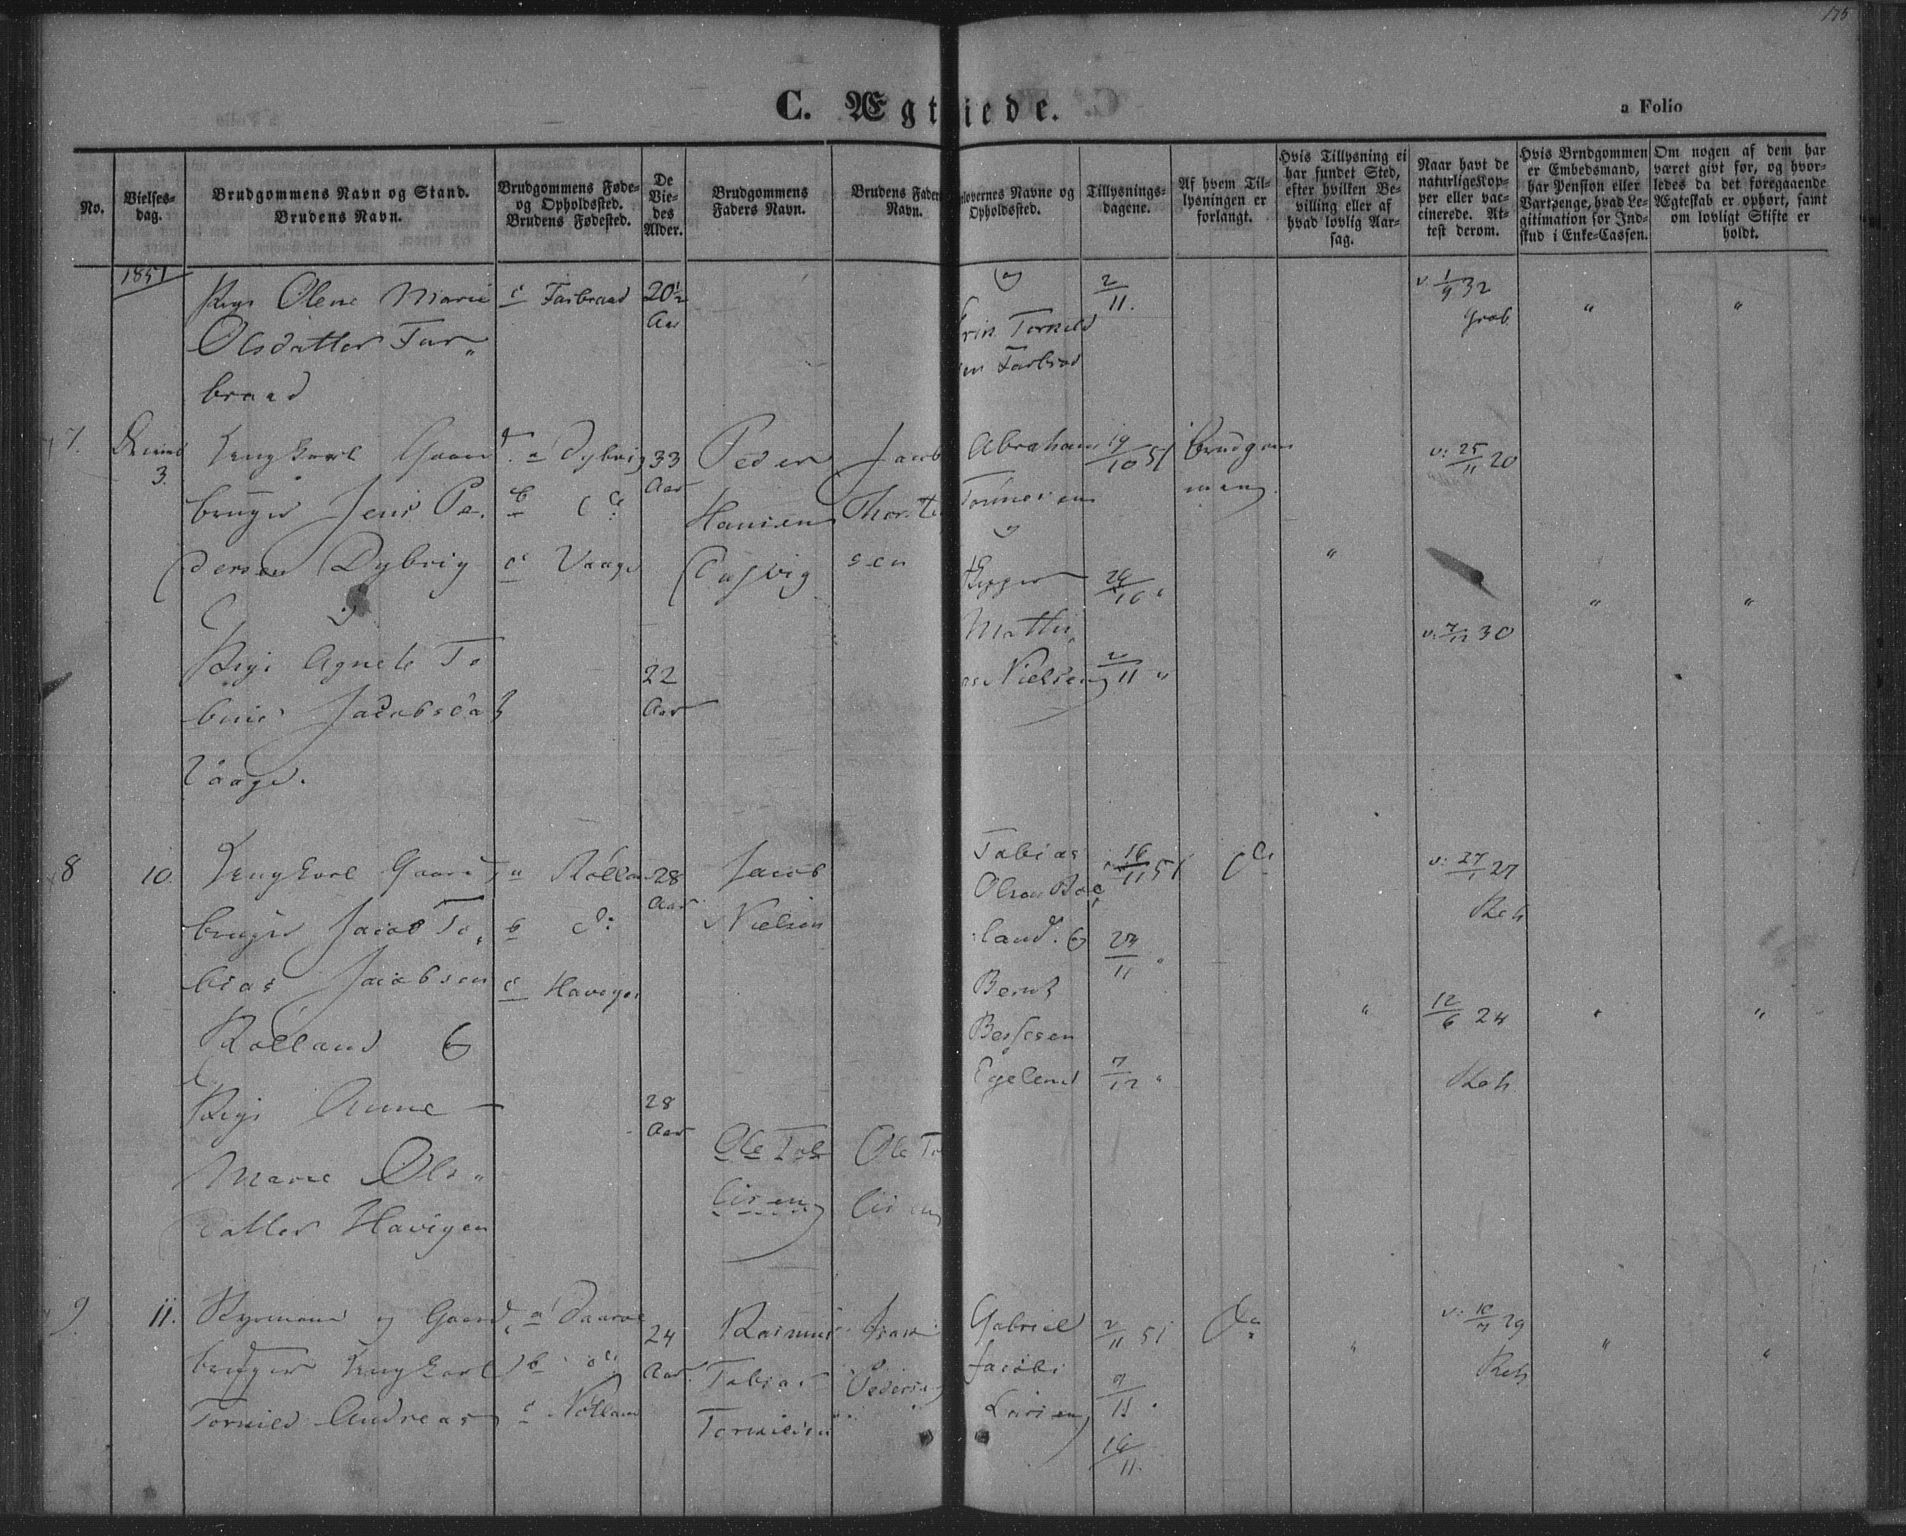 175
C. Ægteviede.
a Folio
No.
Vielses-
dag.
Brudgommens Navn og Stand.
Brudens Navn.
Brudgommens Føde-
og Opholdssted.
Brudens Fødested.
De
Vie-
des
Alder.
Brudgommens
Faders Navn.
Brudens Faders
Navn.
lovernes Navne og
Opholdssted.
Tillysnings-
dagene.
Af hvem Til-
lysningen er
forlangt.
Hvis Tillysning ei
har fundet Sted,
efter hvilken Be-
villing eller af
hvad lovlig Aar-
sag.
Naar havt de
naturlige Kop-
per eller vac-
cinerede. At-
test derom.
Hvis Brudgommen
er Embedsmand,
har Pension eller
Vartpenge, hvad Le-
gitimation for Ind-
skud i Enke-Cassen.
Om nogen af dem har
været givt før, og hvor-
ledes da det foregaaende
Ægteskab er ophørt, samt
om lovligt Skifte er
holdt.
1851
Pige Olene Marie
Olsdatter Far-
braad
c Farbraad
20½
Aar
Tornild
sen Farbrod
2/11.
v. 1/9 32
7.
3.
Ungkarl Gaard
bruger Jens Pe-
dersen Dybvig
Pige Agnete To
bine Jacobsdat
Vaage.
a Dybvig
b do
c Vaage
33
Aar
22
Aar
Peder
Hansen
Jacob
Thorsten
sen
Abraham
Mathi
as Nielsen
19/10 51
26/10 "
2/11 "
Brudgom
men
v: 25/11 20
v. 7/12 30
8
10.
Ungkarl Gaard
bruger Jacob To
bias Jacobsen
Rølland &
Pige Anne
Marie Ols-
datter Havigen
a Rølland
b do
c Havigen
28
Aar
28
Aar
Jacob
Nielsen
Ole Tol
lisen
Ole To
lisen
Tobias
Olsen Roe
land. &
Bernt
Bessesen
Egeland
16/11 51
23/11 "
7/12 "
do
v: 27/1 27
12/6 24
9.
11.
Styrmand og Gaard
bruger Ungkarl
Tornild Andreas
b do
c Nølland
24
Aar.
Rasmus
Tobias
Tornildsen
Isak
Pedersen
Gabriel
Jacobi
Larsen
2/11 51
9/11 "
16/11.
do
v: 10/7 29